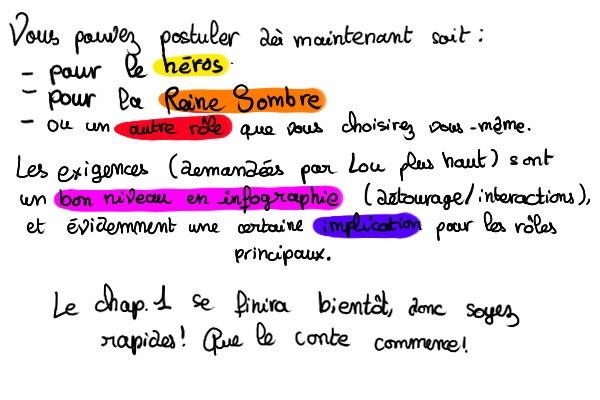 Vous pouvez postuler dès maintenant soit :
- pour le héros.
- pour la Reine Sombre
- ou un autre rôle que vous choisirez vous-même.
Les exigences (demandées par Lou plus haut) sont
un bon niveau en infographie (détourage/interactions),
et évidemment une certaine implication pour les rôles
principaux.
Le chap.1 se finira bientôt, donc soyez
rapides! Que le conte commence!